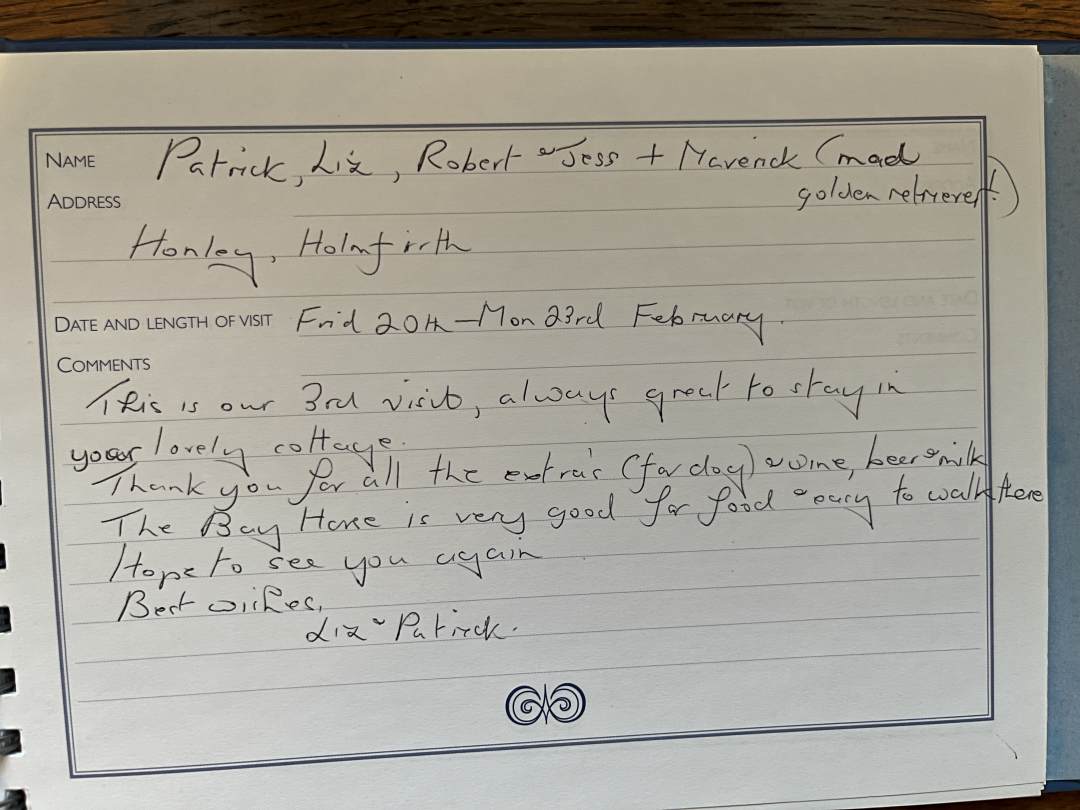 NAME Patrick, Liz, Robert & Jess + Maverick (mad
golden retriever!)
ADDRESS
Honley, Holmfirth
DATE AND LENGTH OF VISIT Frid 20th - Mon 23rd February.
COMMENTS
This is our 3rd visit, always great to stay in
your lovely cottage.
Thank you for all the extra's (for dog) & wine, beer & milk
The Bay Horse is very good for food & easy to walk there
Hope to see you again
Best wishes,
Liz & Patrick.